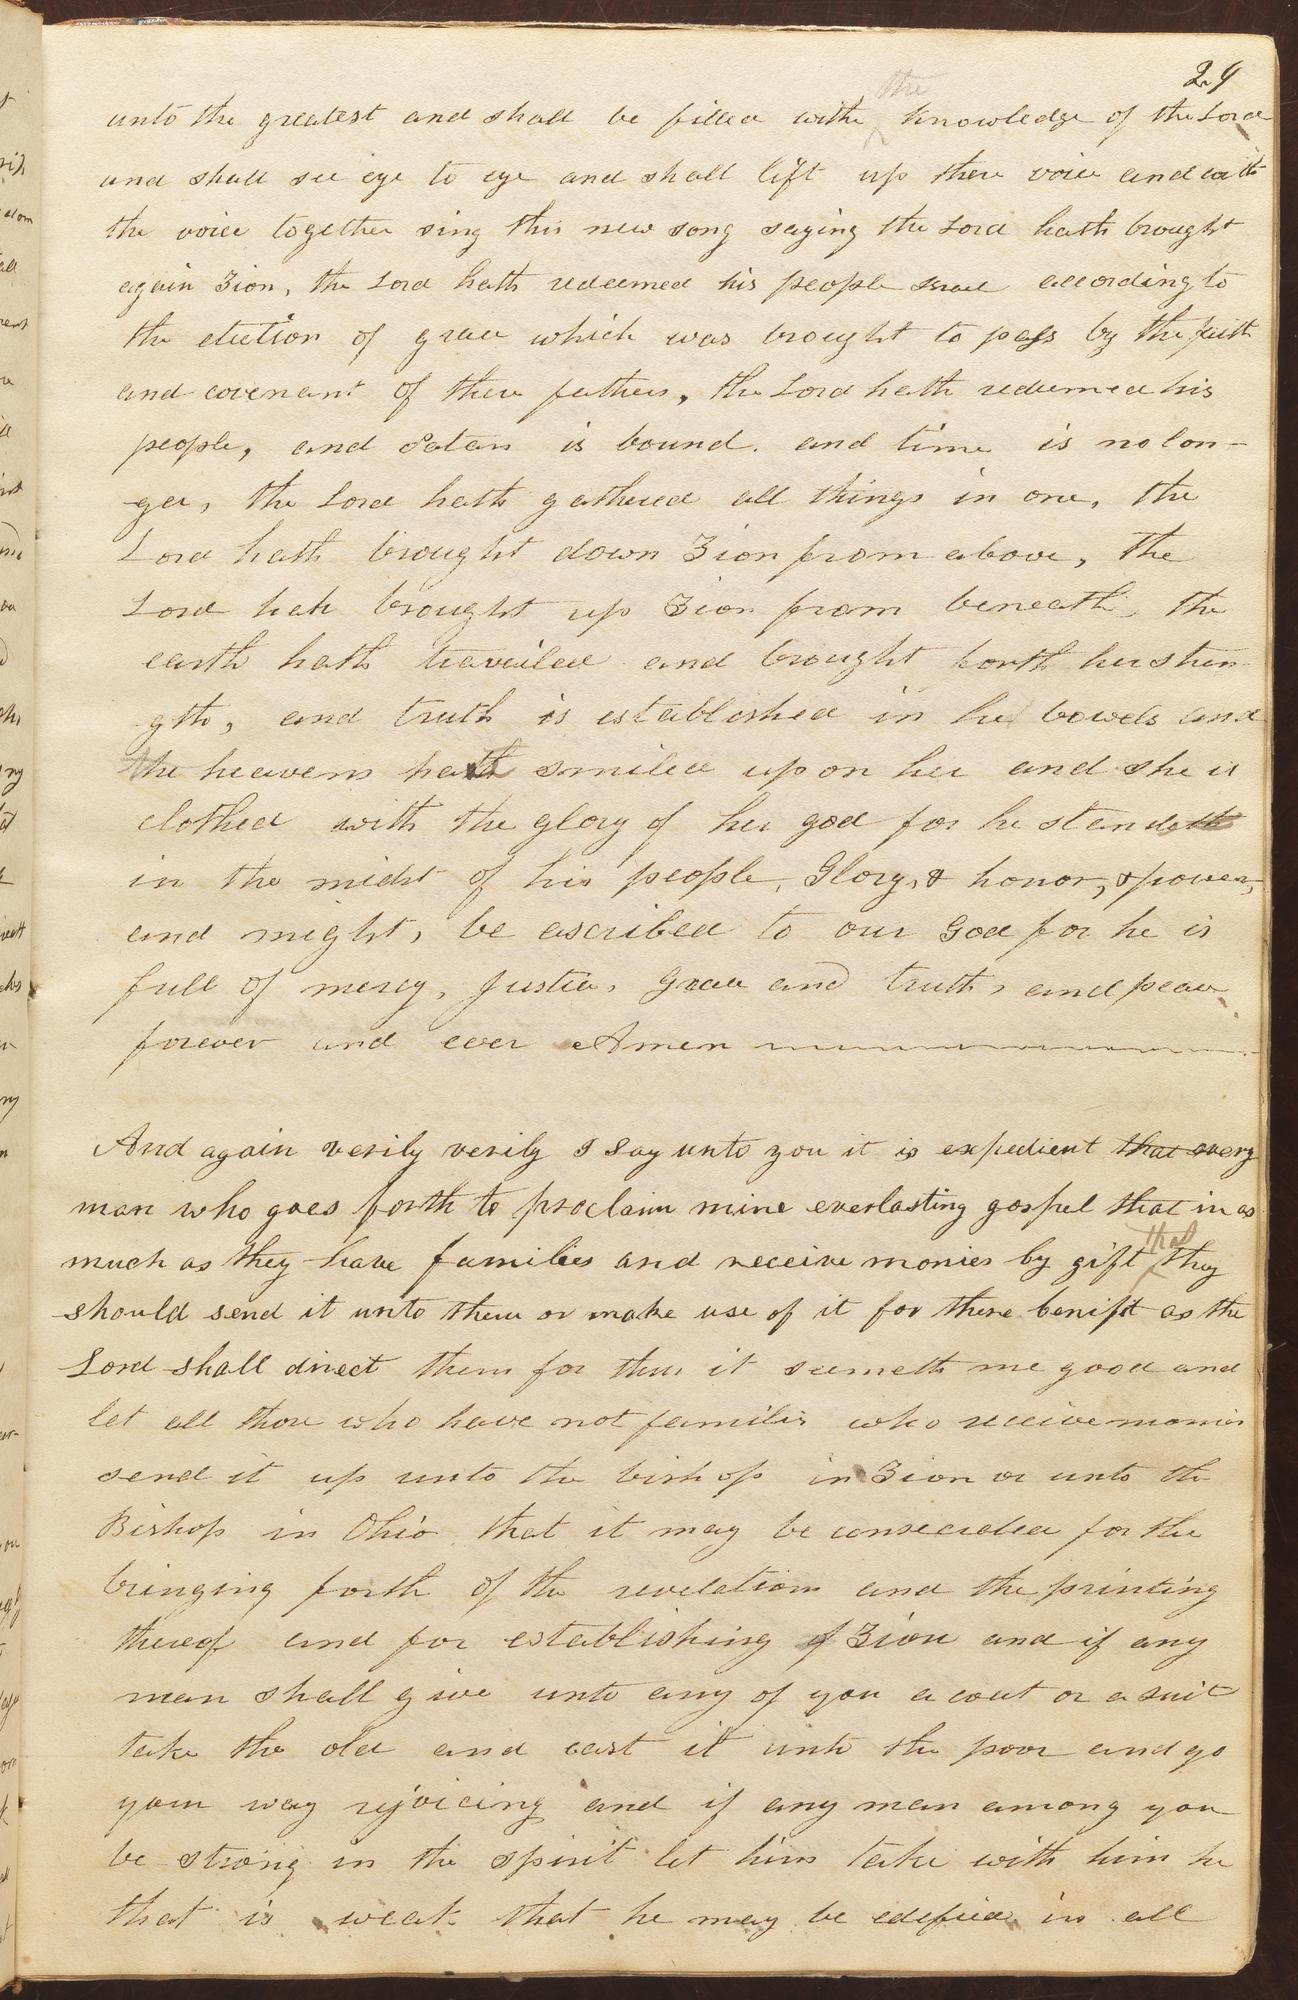 29
unto the greatest and shall be filled with the knowledge of the Lord
and shall see eye to eye and shall lift up there voice and with
the voice together sing this new song saying the Lord hath brought
again Zion, the Lord hath redeemed his people Israel according to
the election of grace which was brought to pass by the faith
and covenant of there fathers, the Lord hath redeemed his
people, and Satan is bound. and time is no lon-
ger, the Lord hath gathered all things in one, the
Lord hath brought down Zion from above, the
Lord hah brought up Zion from beneath, the
earth hath travailed and brought forth her stren
gth, and truth is established in her bowels and
the heavens hath smiled upon her and she is
clothed with the glory of her god for he standeth
in the midst of his people, Glory, & honor, & power,
and might, be ascribed to our God for he is
full of mercy, Justice, Grace and truth, and peace
forever and ever Amen
And again verily verily I say unto you it is expedient that every
man who goes forth to proclaim mine everlasting gospel that in as
much as they have families and receive monies by gift that they
should send it unto them or make use of it for there benifit as the
Lord shall direct them for thus it seemeth me good and
let all those who have not families who receive monies
send it up unto the bishop in Zion or unto the
Bishop in Ohio that it may be consecrated for the
bringing forth of the revelations and the printing
thereof and for establishing of Zion and if any
man shall give unto any of you a coat or a suit
take the old and cast it unto the poor and go
your way rejoicing and if any man among you
be strong in the spirit let him take with him he
that is weak that he may be edified in all